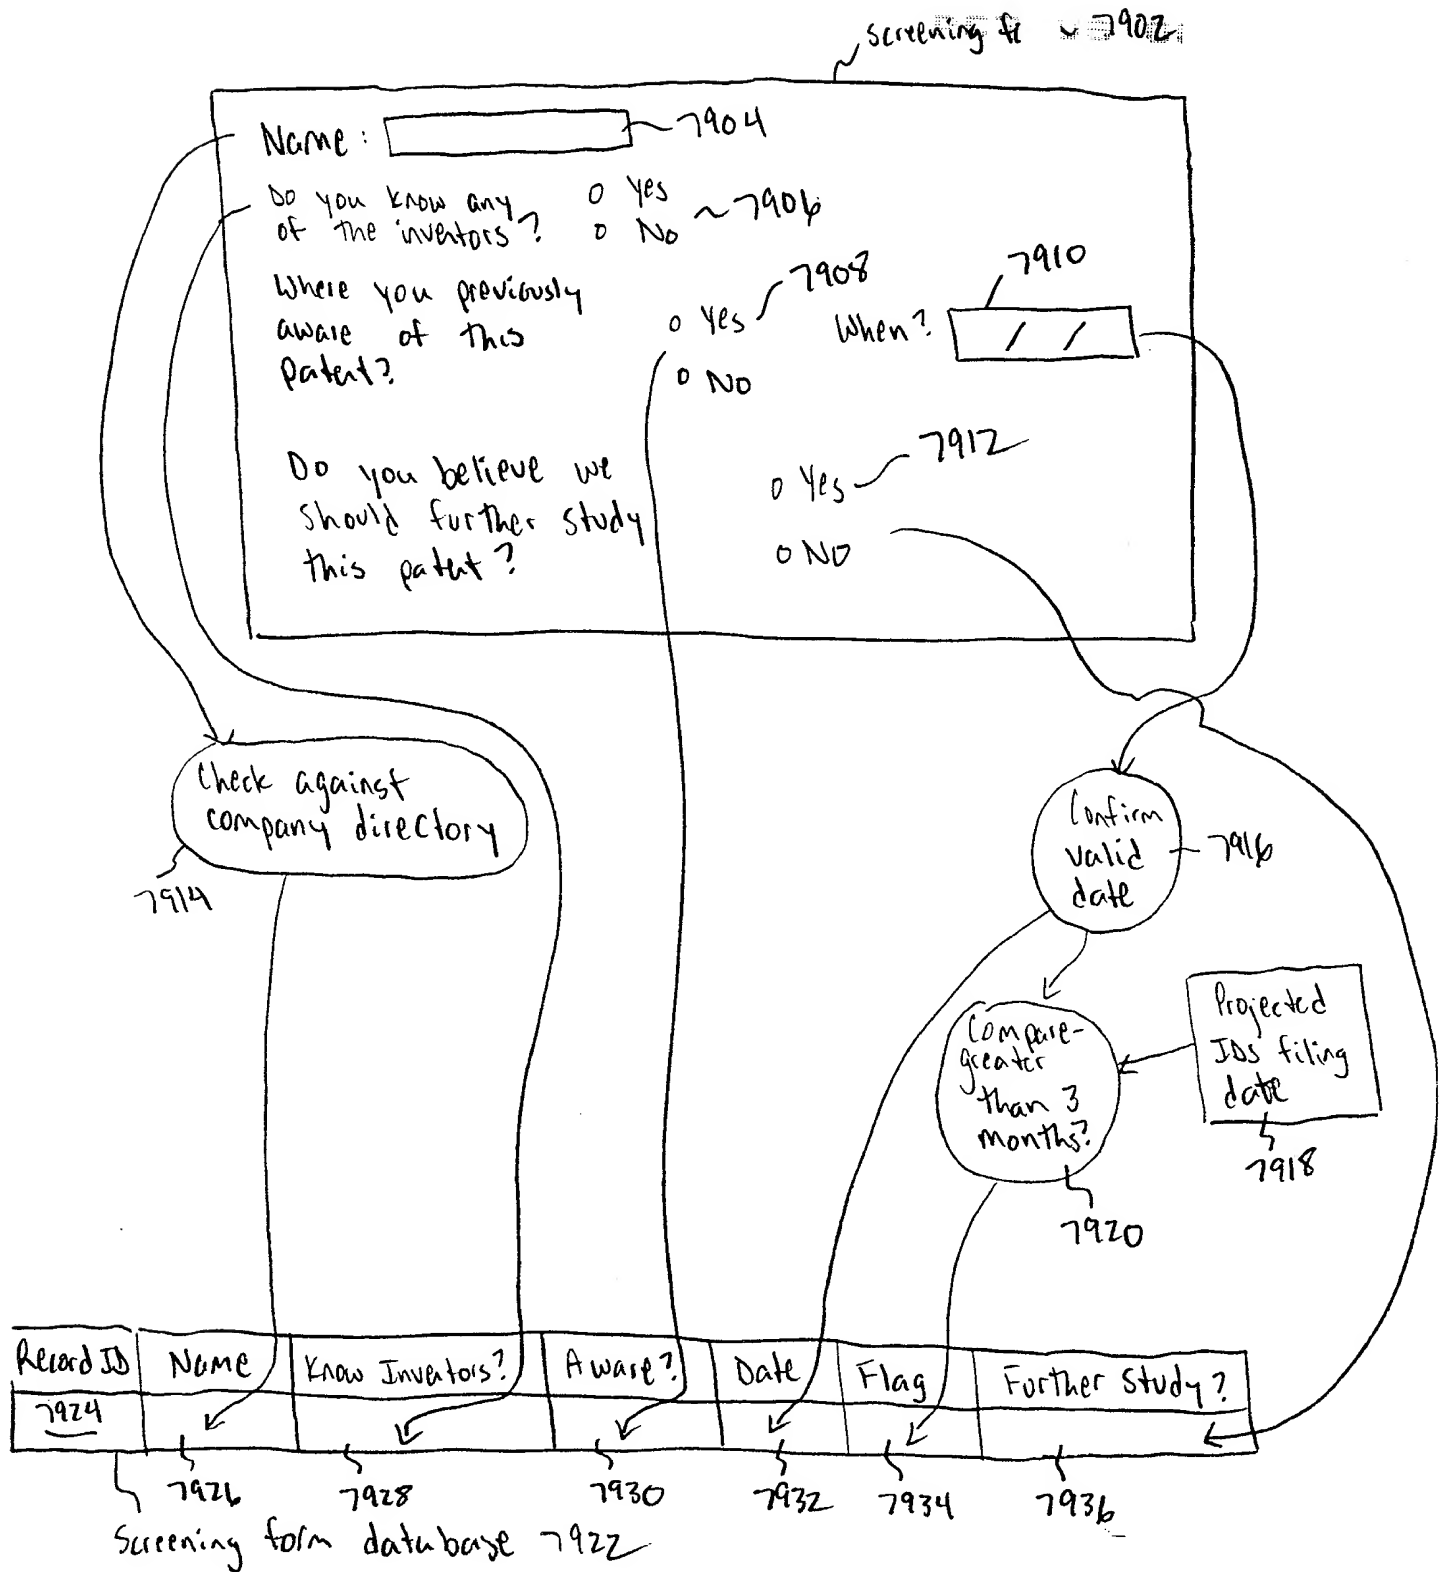 screening 7902
Name: 7904
Do you know any o Yes
of the inventors? o No ~7906
Where you previously
aware of this
patent?
o Yes 7908
o No
When? / / 7910
Do you believe we
should further study
this patent?
o Yes 7912
o No
Check against
company directory
7914
Confirm
valid
date
7916
Compare-
greater
than 3
months?
7920
Projected
IDS filing
date
7918
Record ID Name Know Inventors? Aware? Date Flag Further Study?
7924
7926 7928 7930 7932 7934 7936
Screening form database 7922